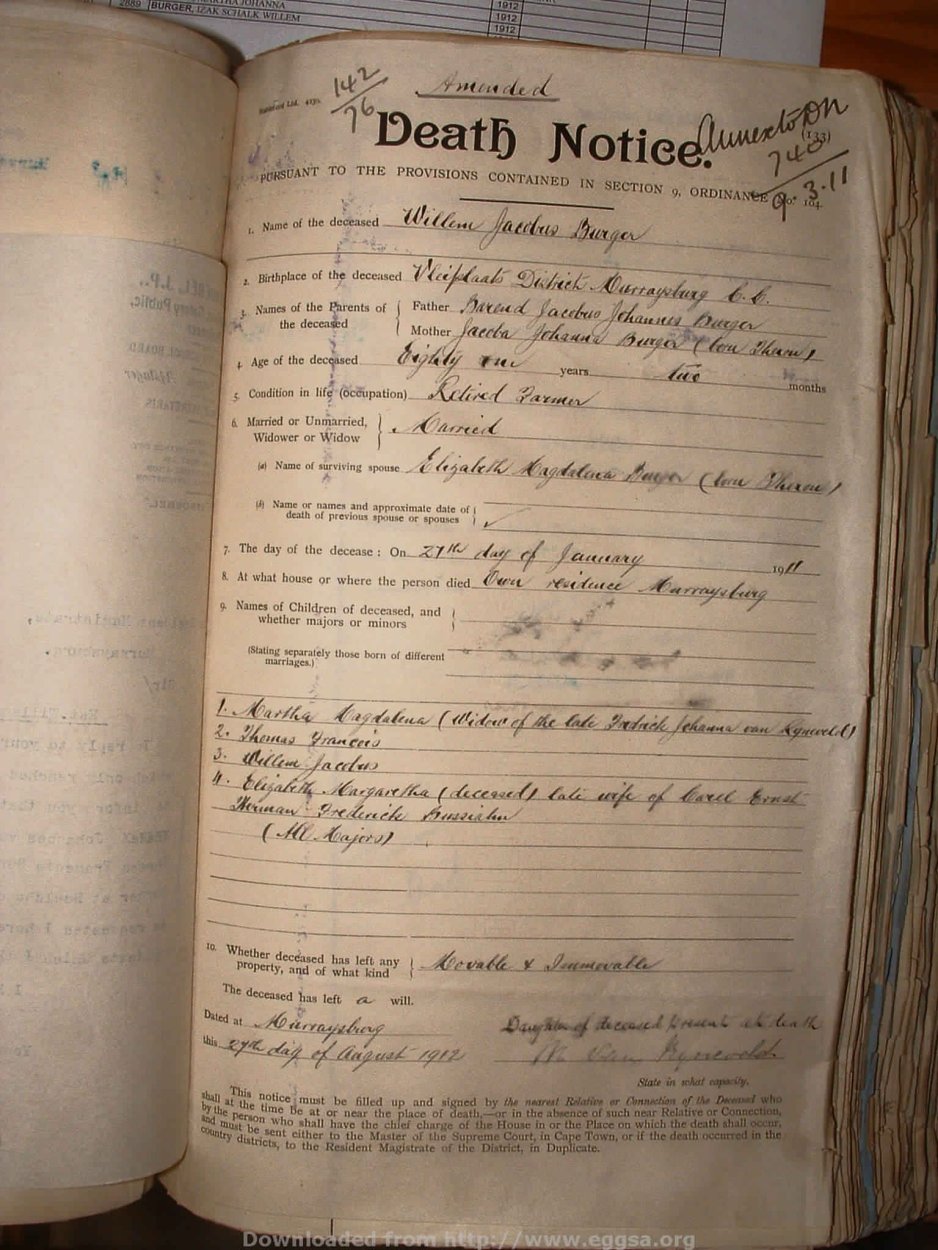 2889 BURGER, IZAK SCHALK WILLEM
1912
1912
1912
142
76
Amended
Death Notice.
Annex to DN
(133)
740
9.3.11
PURSUANT TO THE PROVISIONS CONTAINED IN SECTION 9, ORDINANCE No. 104
1. Name of the deceased Willem Jacobus Burger
2. Birthplace of the deceased Vleiplaats District Murraysburg C.C.
3. Names of the Parents of the deceased { Father Barend Jacobus Johannes Burger
Mother Jacoba Johanna Burger (born Theron)
4. Age of the deceased Eighty one years two months
5. Condition in life (occupation) Retired Farmer
6. Married or Unmarried, Widower or Widow } Married
(a) Name of surviving spouse Elizabeth Magdalena Burger (born Theron)
(b) Name or names and approximate date of death of previous spouse or spouses }
7. The day of the decease: On 27th day of January 1911
8. At what house or where the person died Own residence Murraysburg
9. Names of Children of deceased, and whether majors or minors {
(Stating separately those born of different marriages.)
1. Martha Magdalena (Widow of the late Fredrick Johanna van Ryneveld)
2. Thomas Francois
3. Willem Jacobus
4. Elizabeth Margaretha (deceased) late wife of Carel Ernst
Herman Frederick
(All Majors)
10. Whether deceased has left any property, and of what kind } Movable & Immovable
The deceased has left a will.
Dated at Murraysburg
Daughter of deceased present at death
this 27th day of August 1912
M van Ryneveld
State in what capacity.
This notice must be filled up and signed by the nearest Relative or Connection of the Deceased who
shall at the time be at or near the place of death,—or in the absence of such near Relative or Connection,
by the person who shall have the chief charge of the House in or the Place on which the death shall occur,
and must be sent either to the Master of the Supreme Court, in Cape Town, or if the death occurred in the
country districts, to the Resident Magistrate of the District, in Duplicate.
Downloaded from http://www.eggsa.org